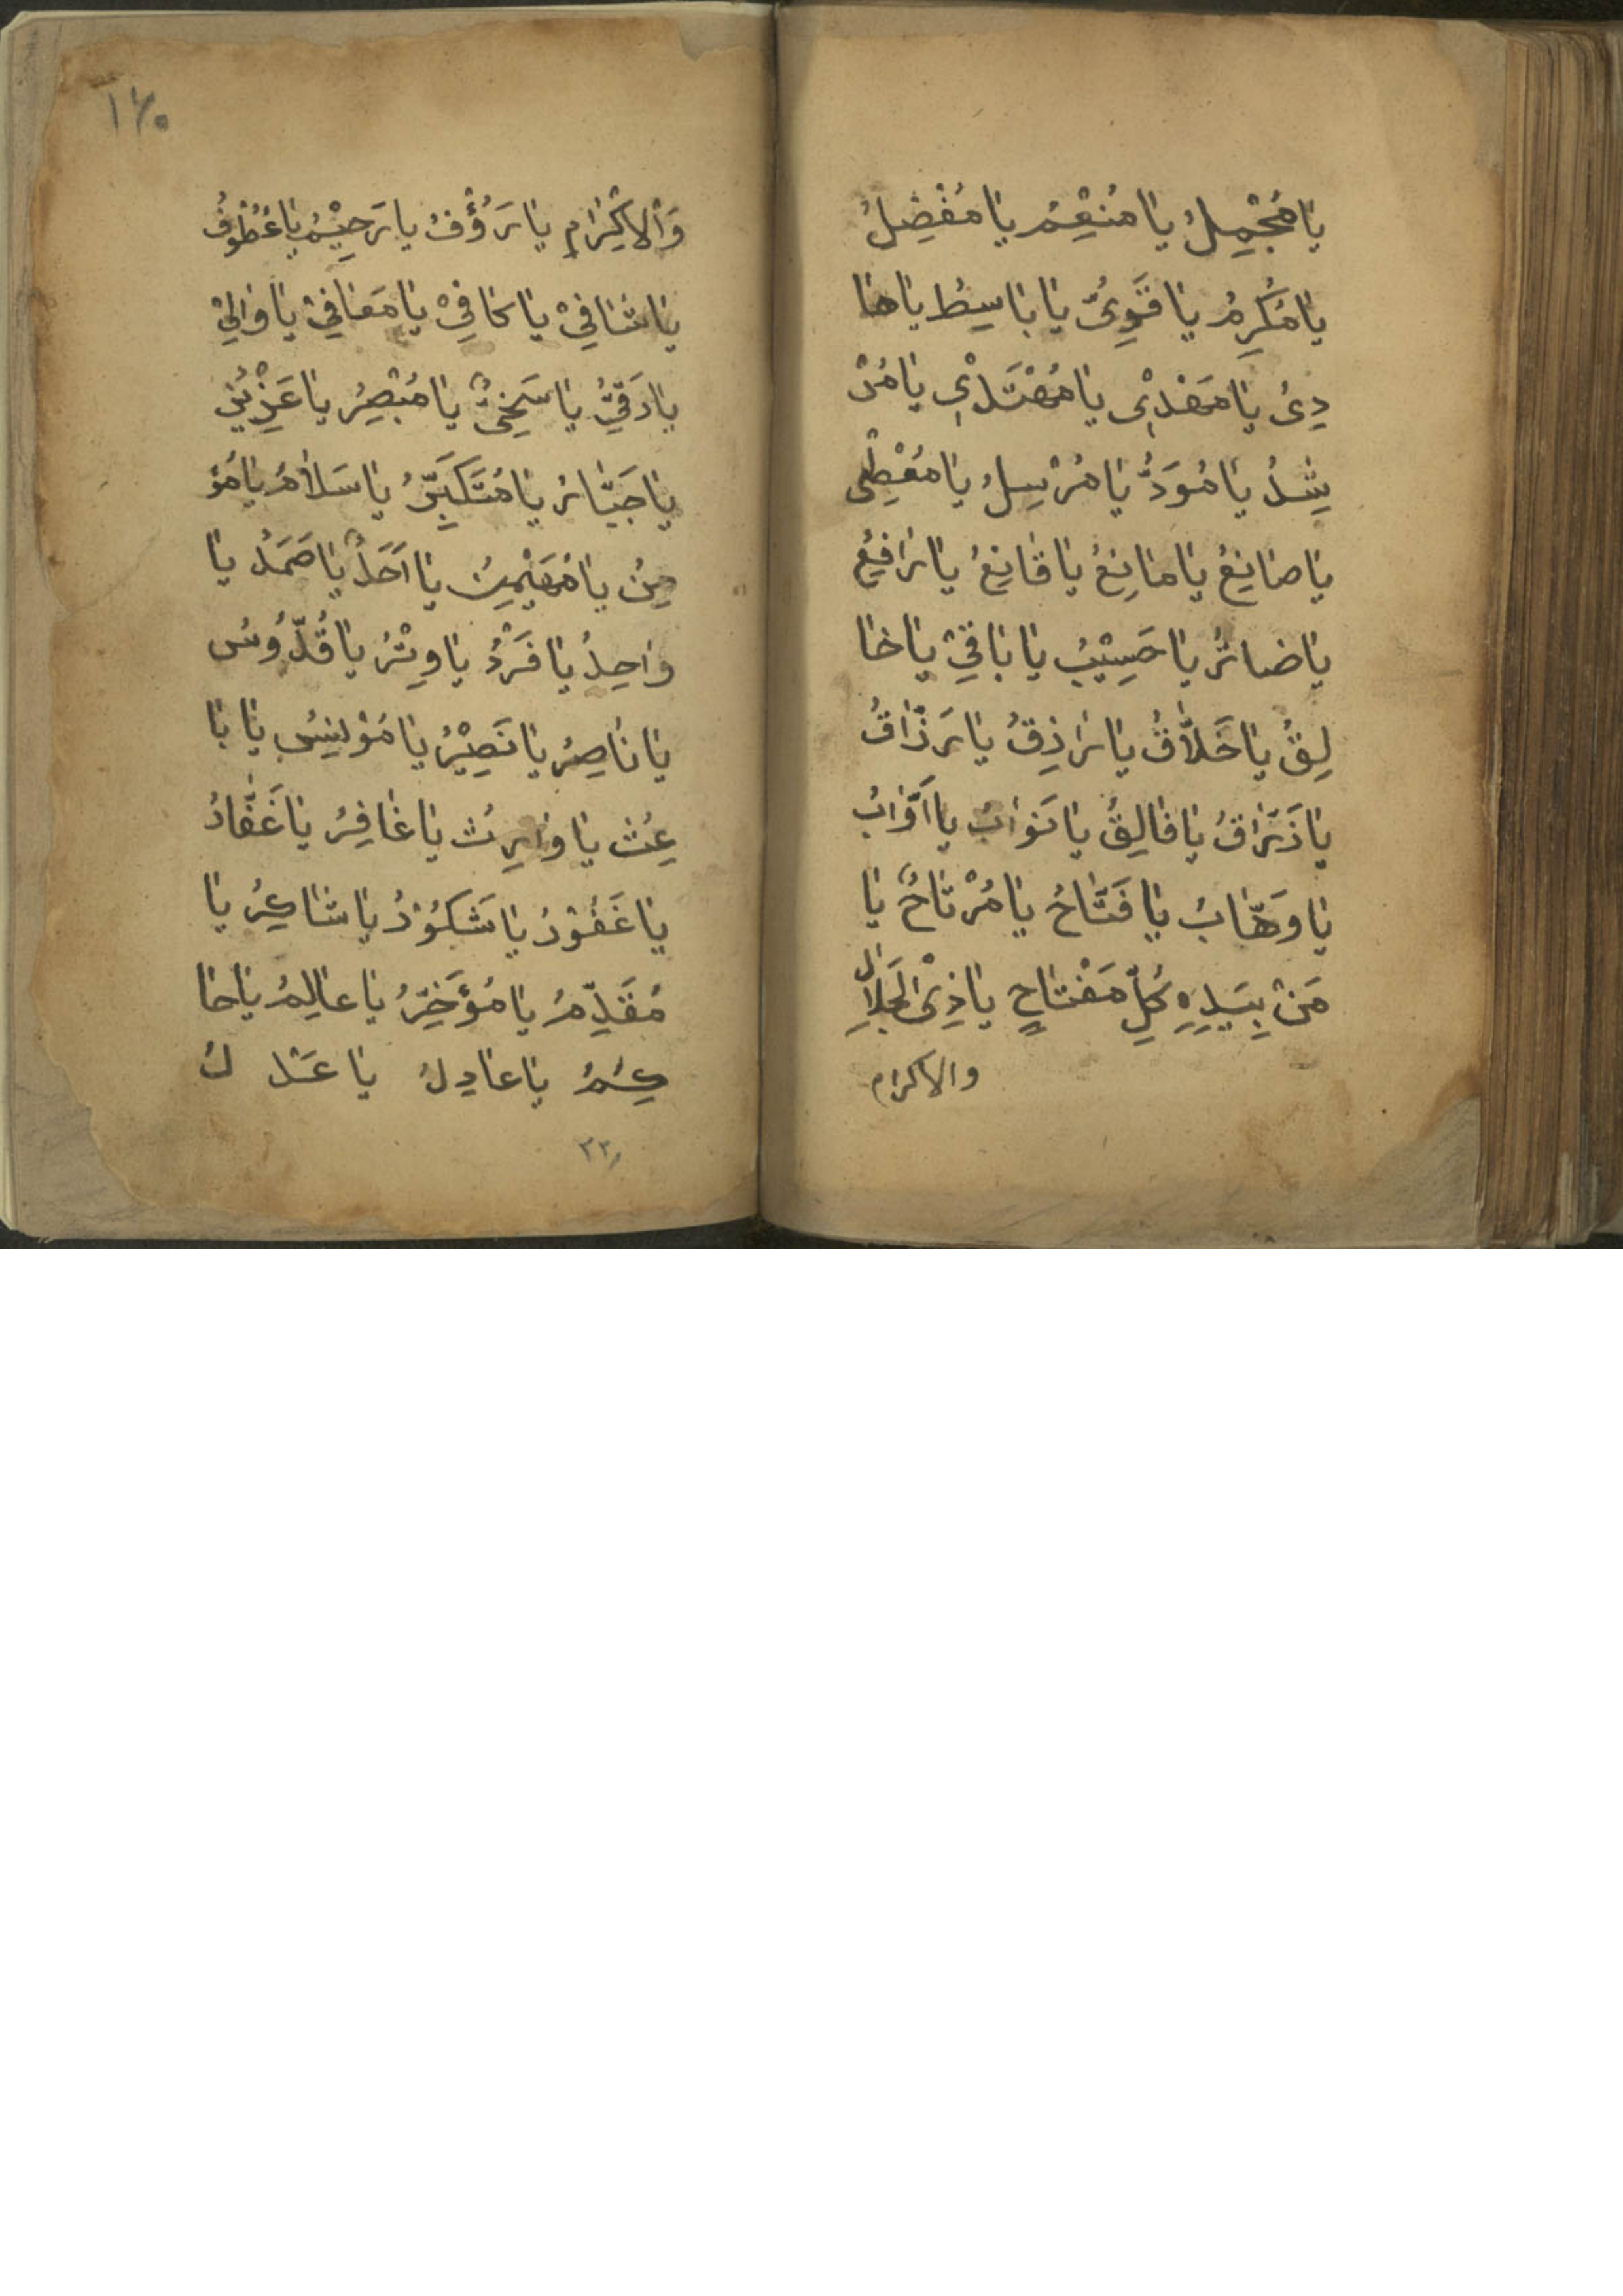 يا مُجْمِلُ يا مُنْعِمُ يا مُفْضِلُ
يا مُكْرِمُ يا قَوِىُّ يا باسِطُ يا ها
دِىُ يا مَهْدِىْ يا مُهْتَدِىْ يا مُرْ
شِدُ يا مُوَدُّ يا مُرْسِلُ يا مُعْطِىْ
يا صانِعُ يا مانِعُ يا قانِعُ يا رافِعُ
يا ضارُ يا حَسِيْبُ يا باقِىْ يا خا
لِقُ يا خَلاَّقُ يا رازِقُ يا رَزَّاقُ
يا ذَرَاقُ يا فالِقُ يا تَوابُ يا اَوَّابُ
يا وَهَّابُ يا فَتَّاحُ يا مُرْتاحُ يا
مَنْ بِيَدِهِ كُلِّ مَفْتاحٍ يا ذِىْ الجَلاَلِ
والاكرام
١٤٠
وَالْاِكْرامِ يا رَؤُفُ يا رَحِيْمُ يا عُطُوفُ
يا شافِىْ يا كافِىْ يا مَعافِىْ يا والِىْ
يا دَقِىُّ يا سَخِىُّ يا مُبْصِرُ يا عَزِيْزُ
يا جَبَّارُ يا مُتَكَبِّرُ يا سَلامُ يا مُؤ
مِنُ يا مُهَيْمِنُ يا اَحَدُ يا صَمَدُ يا
واحِدُ يا فَرْدُ يا وِتْرُ يا قُدُّوسُ
يا ناصِرُ يا نَصِيْرُ يا مُوْنِسُ يا با
عِثُ يا وارِثُ يا غافِرُ يا غَفَّارُ
يا غَفُوْرُ يا شَكُوْرُ يا شاكِرُ يا
مُقَدِّمُ يا مُؤَخِّرُ يا عالِمُ يا حا
كِمُ يا عادِلُ يا عَدْلُ
٢٣